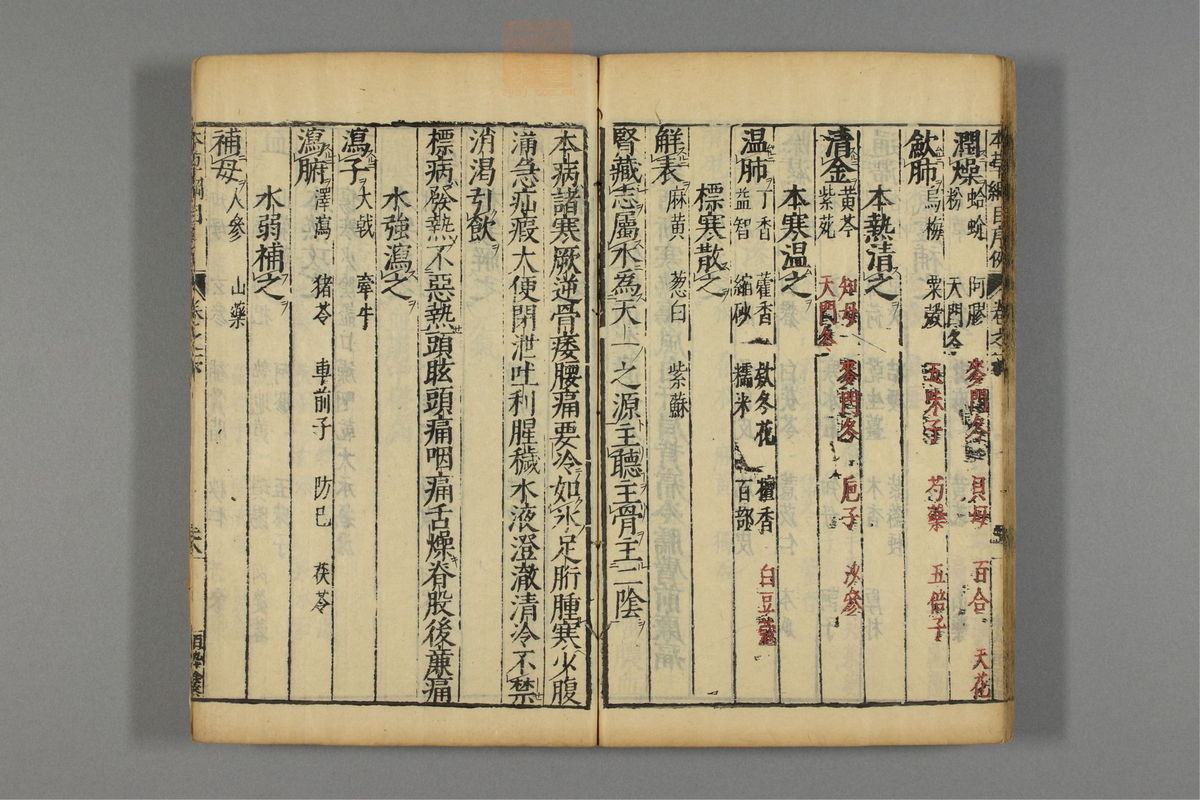 潤燥 蛤蚧 阿膠 麥門冬 貝母 百合 天花
粉 天門冬
斂肺 烏梅 粟殼 五味子 芍藥 五倍子
本熱清之
清金 黃芩 知母 麥門冬 梔子 沙參
紫苑 天門冬
本寒温之
温肺 丁香 藿香 欵冬花 檀香 白豆蔻
益智 縮砂 糯米 百部
標寒散之
解表 麻黄 葱白 紫蘇
腎藏志屬水為天一之源主聽主骨主二陰
本病諸寒厥逆骨痿腰痛要冷如氷足胻腫寒少腹
滿急疝瘕大便閉泄吐利腥穢水液澄澈清冷不禁
消渴引飲
標病發熱不惡熱頭眩頭痛咽痛舌燥脊股後廉痛
水強瀉之
瀉子 大戟 牽牛
瀉腑 澤瀉 猪苓 車前子 防己 茯苓
水弱補之
補母 人參 山藥